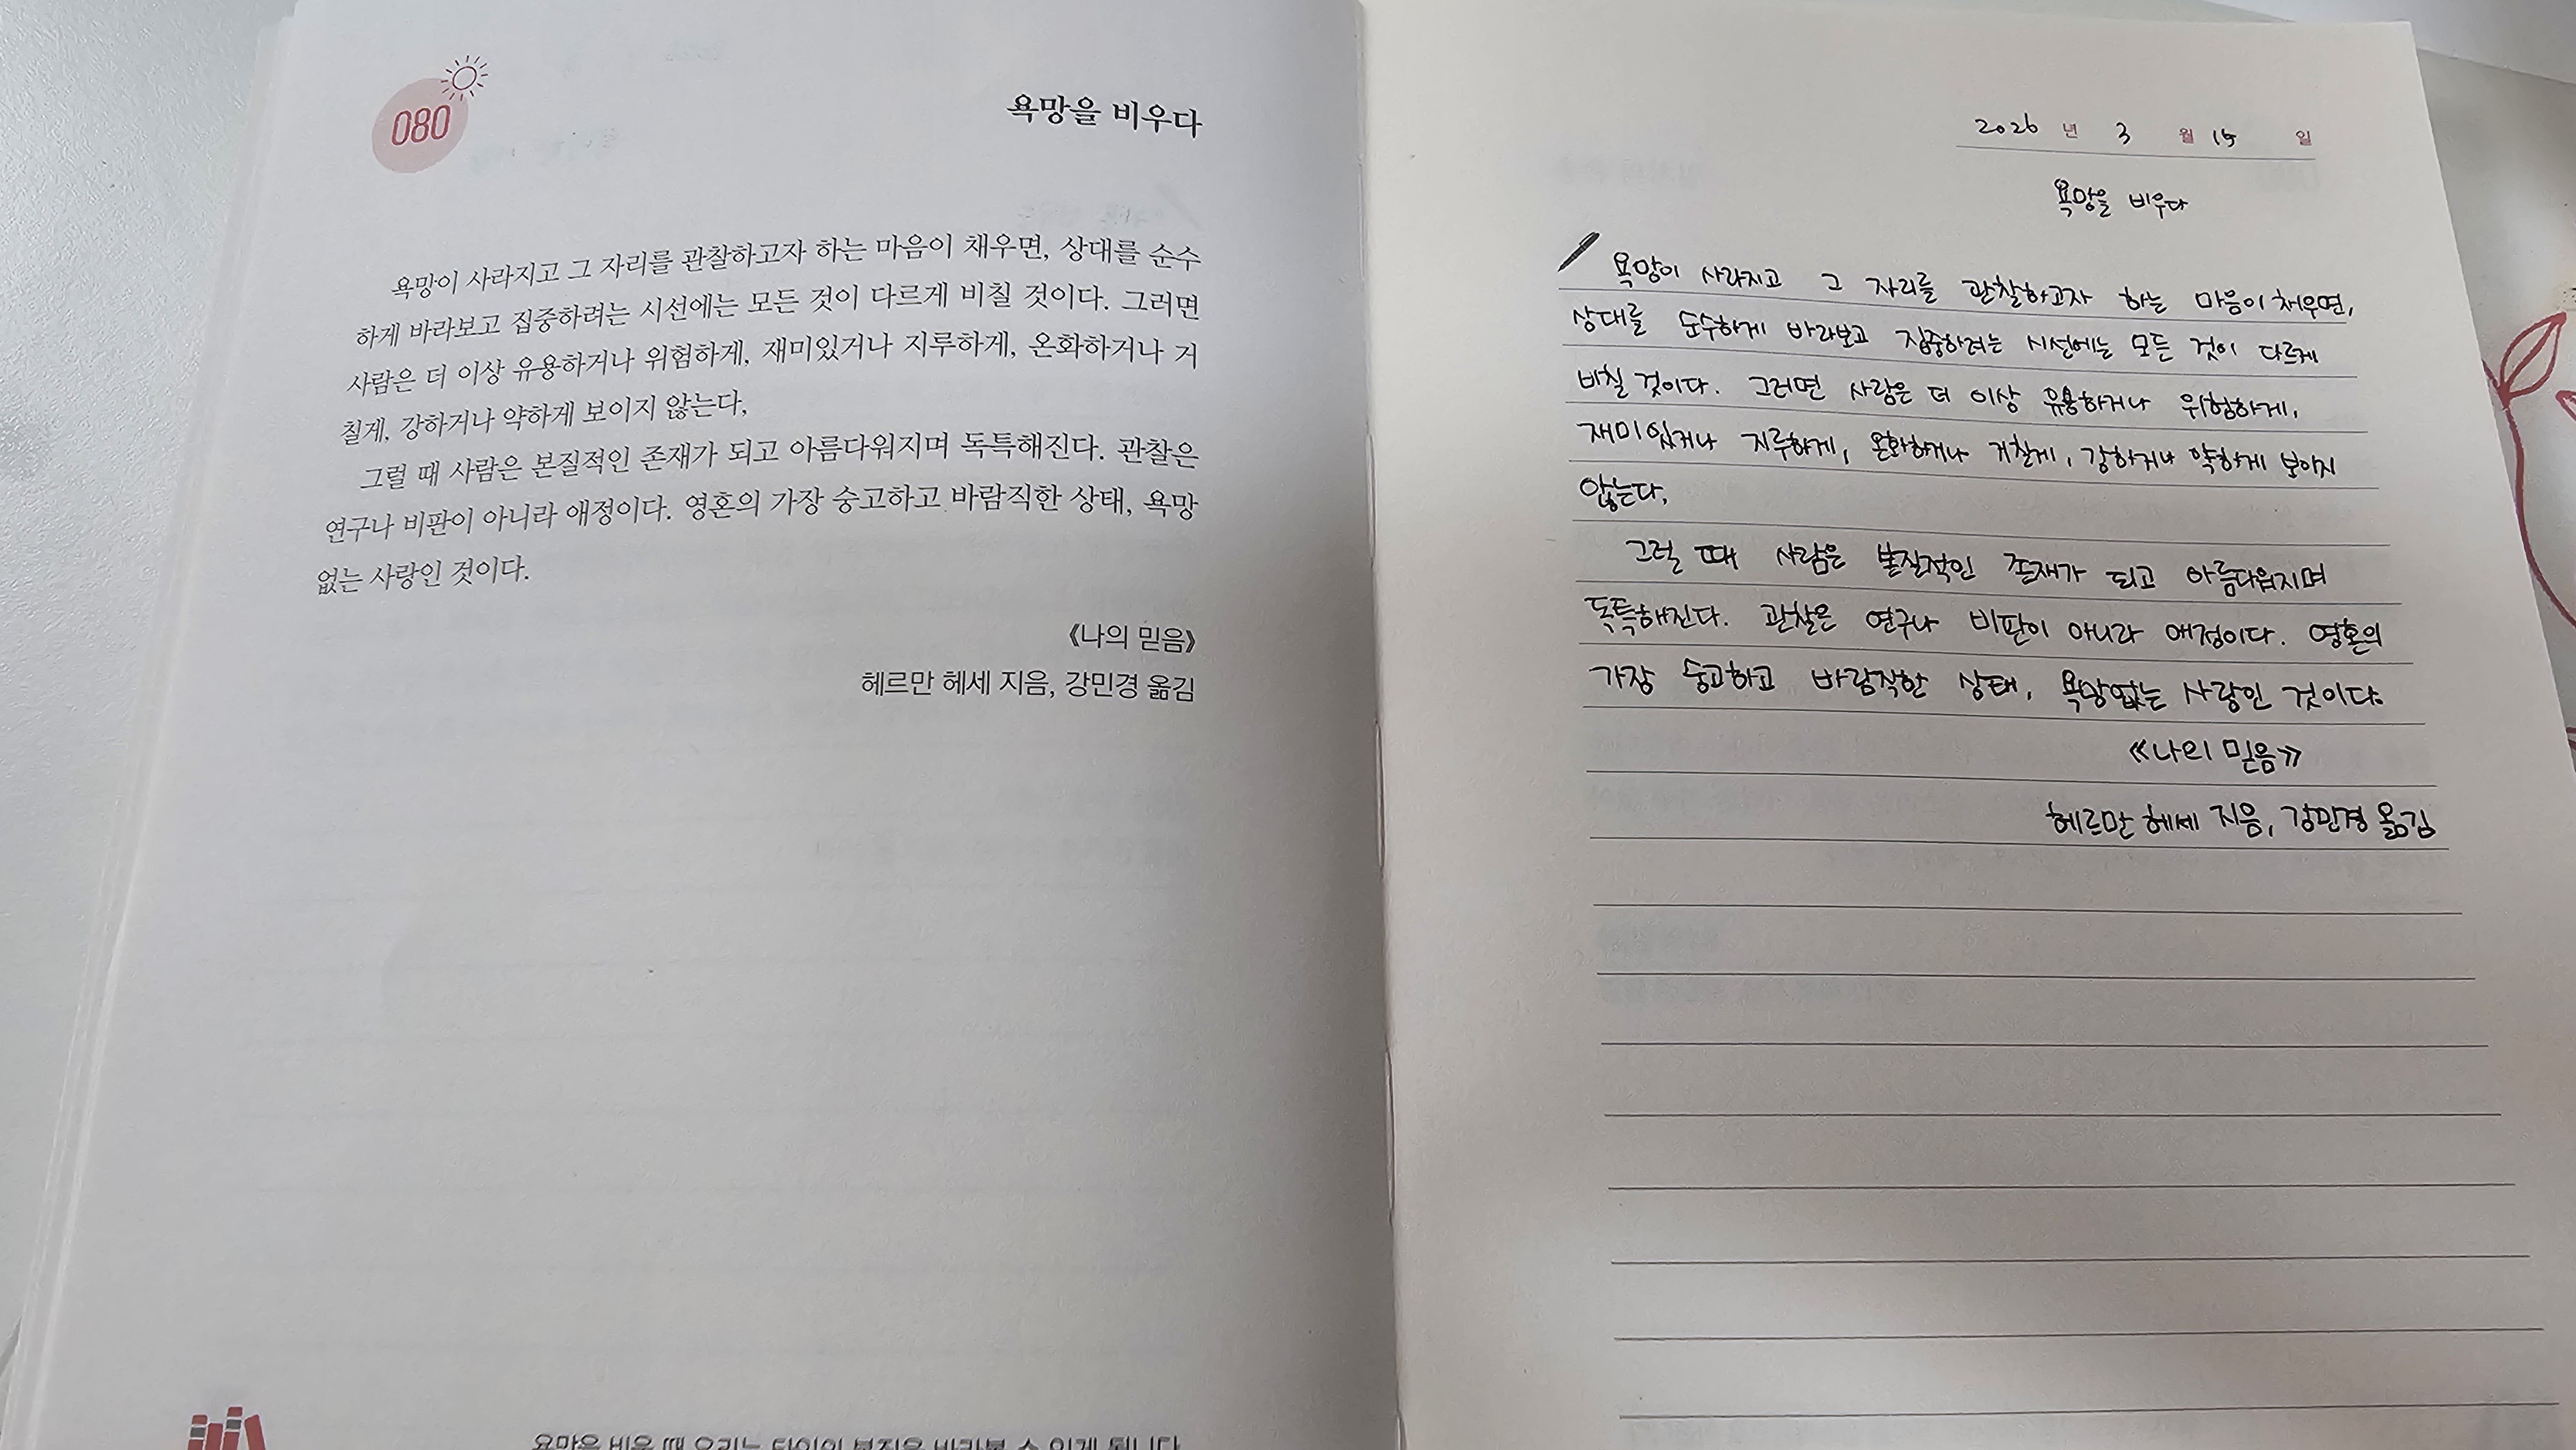 080
욕망을 비우다
욕망이 사라지고 그 자리를 관찰하고자 하는 마음이 채우면, 상대를 순수
하게 바라보고 집중하려는 시선에는 모든 것이 다르게 비칠 것이다. 그러면
사람은 더 이상 유용하거나 위험하게, 재미있거나 지루하게, 온화하거나 거
칠게, 강하거나 약하게 보이지 않는다,
그럴 때 사람은 본질적인 존재가 되고 아름다워지며 독특해진다. 관찰은
연구나 비판이 아니라 애정이다. 영혼의 가장 숭고하고 바람직한 상태, 욕망
없는 사랑인 것이다.
《나의 믿음》
헤르만 헤세 지음, 강민경 옮김
2026 년 3 월 15 일
욕망을 비우다
욕망이 사라지고 그 자리를 관찰하고자 하는 마음이 채우면,
상대를 순수하게 바라보고 집중하려는 시선에는 모든 것이 다르게
비칠 것이다. 그러면 사람은 더 이상 유용하거나 위험하게,
재미있거나 지루하게, 온화하거나 거칠게, 강하거나 약하게 보이지
않는다,
그럴 때 사람은 본질적인 존재가 되고 아름다워지며
독특해진다. 관찰은 연구나 비판이 아니라 애정이다. 영혼의
가장 숭고하고 바람직한 상태, 욕망없는 사랑인 것이다.
《나의 믿음》
헤르만 헤세 지음, 강민경 옮김